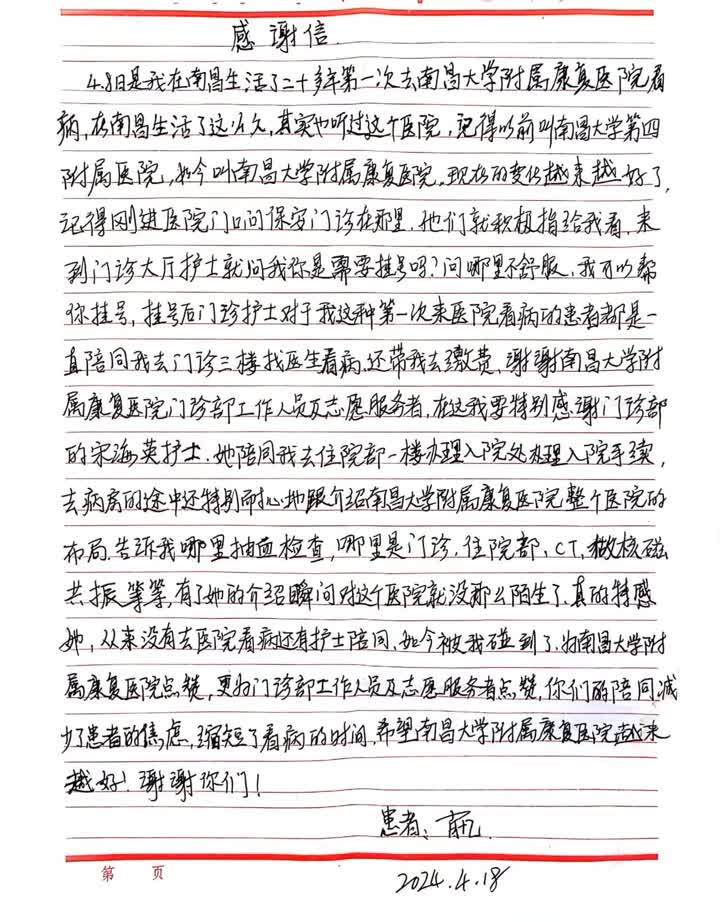 感谢信
4.8日是我在南昌生活了二十多年第一次去南昌大学附属康复医院看
病,在南昌生活了这么久,其实也听过这个医院,记得以前叫南昌大学第四
附属医院,如今叫南昌大学附属康复医院。现在的变化越来越好了,
记得刚进医院门口问保安门诊在那里,他们就积极指给我看,来
到门诊大厅护士就问我你是需要挂号吗?问哪里不舒服,我可以帮
你挂号,挂号后门诊护士对于我这种第一次来医院看病的患者都是一
直陪同我去门诊三楼找医生看病,还带我去缴费,谢谢南昌大学附
属康复医院门诊部工作人员及志愿服务者,在这我要特别感谢门诊部
的宋海英护士,她陪同我去住院部一楼办理入院处办理入院手续,
去病房的途中还特别耐心地跟介绍南昌大学附属康复医院整个医院的
布局,告诉我哪里抽血检查,哪里是门诊,住院部,CT,做核磁
共振等等,有了她的介绍瞬间对这个医院就没那么陌生了,真的特感
她,从来没有去医院看病还有护士陪同,如今被我碰到了,为南昌大学附
属康复医院点赞,更为门诊部工作人员及志愿服务者点赞,你们的陪同减
少了患者的焦虑,缩短了看病的时间,希望南昌大学附属康复医院越来
越好!谢谢你们!
患者:
第 页
2024.4.18